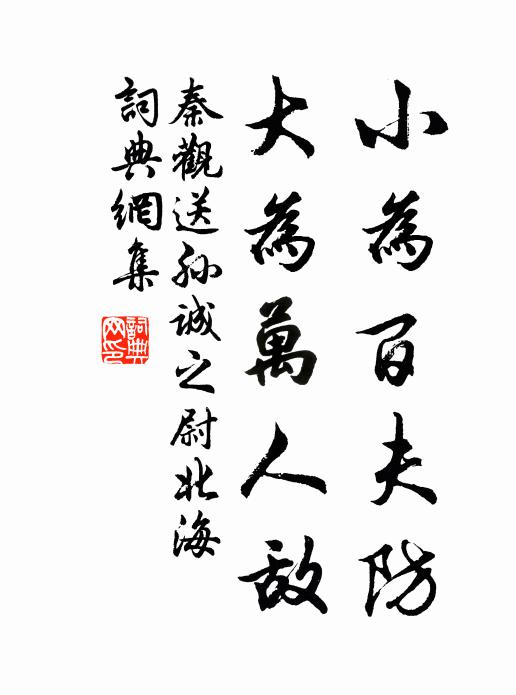 小為百夫防
大為萬人敵
秦觀送孫誠之尉北海
詞典網集
詞典网印